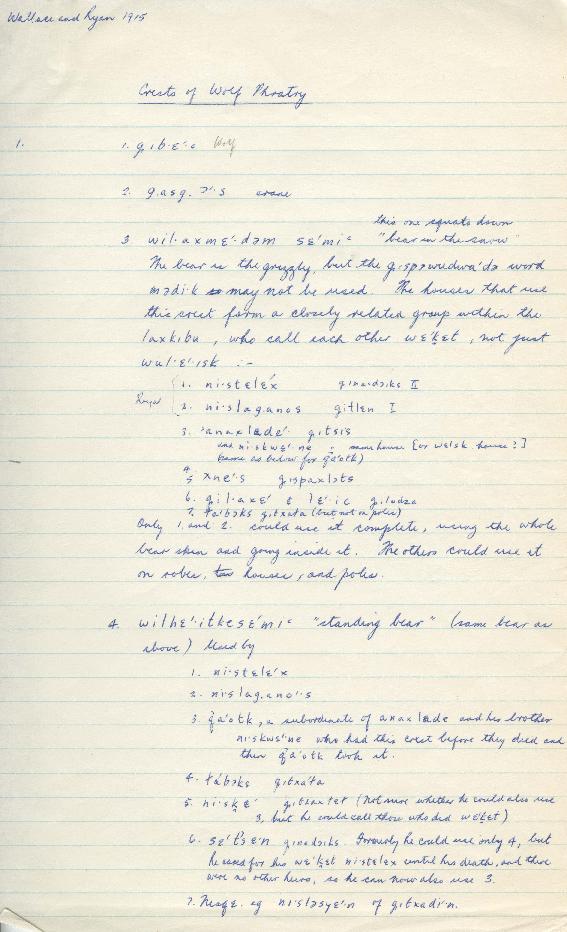 Wallace and Ryan 1915
Crests of Wolf Phratry
1. 1. g̣ib.ɛ·'.ᶜ Wolf
2. g.asg.ɔ'·s crane
this one squats down
3 wil·axmɛ'·dəm sɛ'mi ᶜ "bear in the snow"
The bear is the grizzly, but the g̣ispəwudwa'də word
mədi·k may not be used. The houses that use
this crest form a closely related group within the
laxkibu, who call each other wɛ'k̓ɛt, not just
wul·ɛ·isk :-
Royal 1. ni·stɛlɛ'x ginaxdɔiks II
2. ni·slaganos gitlɛn I
3. 'anaxlɛdɛ' gitsis
and niskwɛ'·ne : same house [or wɛlsk house?]
same as below for q̓a'otk)
4.
5 xnɛ's gispaxlɔts
6. giludza
7. ła'bəks gitxała (but not on poles)
Only 1. and 2. could use it complete, using the whole
bear skin and going inside it. The others could use it
on robes, houses, and poles.
4. wilhɛ'·itkɛsɛ'mi ᶜ "standing bear" (same bear as
above) Used by
1. ni·stɛlɛ'x
2. ni·slag.ano'·s
3. q̓a'otk, a subordinate of anaxlɛde and his brother
niskwɛ'·ne who had this crest before they died and
then q̓a'otk took it.
4. ła'bəks gitxa'ła
5. ni·sk̟ɛ' gitzaxłɛł (Not sure whether he could also use
3, but he could call those who did wɛ'kɛt)
6. sɛ'ts̓ɛn ginadɔiks. Formerly he could use only 4, but
he used for his wɛ'k̓ɛt ni·stɛlɛx until his death, and there
were no other heirs, so he can now also use 3.
7. ni·sləsyɛ'n of gitxadi'n.